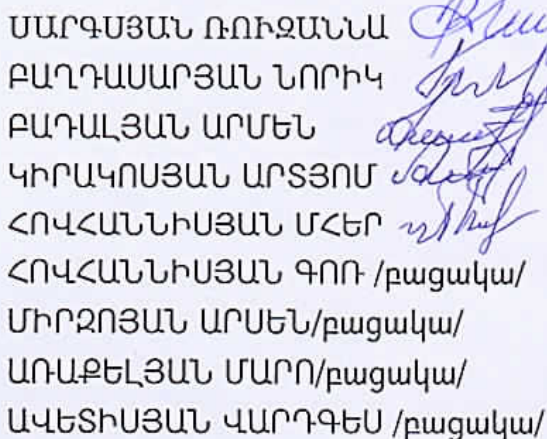 ՍԱՐԳՍՅԱՆ ՌՈՒԶԱՆՆԱ
ԲԱՂԴԱՍԱՐՅԱՆ ՆՈՐԻԿ
ԲԱԴԱԼՅԱՆ ԱՐՄԵՆ
ԿԻՐԱԿՈՍՅԱՆ ԱՐՏՅՈՄ
ՀՈՎՀԱՆՆԻՍՅԱՆ ՄՀԵՐ
ՀՈՎՀԱՆՆԻՍՅԱՆ ԳՈՌ /բացակա/
ՄԻՐԶՈՅԱՆ ԱՐՍԵՆ/բացակա/
ԱՌԱՔԵԼՅԱՆ ՄԱՐՈ/բացակա/
ԱՎԵՏԻՍՅԱՆ ՎԱՐԴԳԵՍ /բացակա/